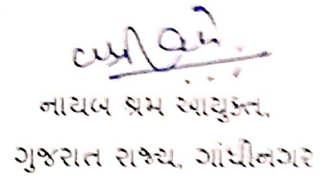 નાયબ શ્રમ આયુક્ત,
ગુજરાત રાજ્ય, ગાંધીનગર